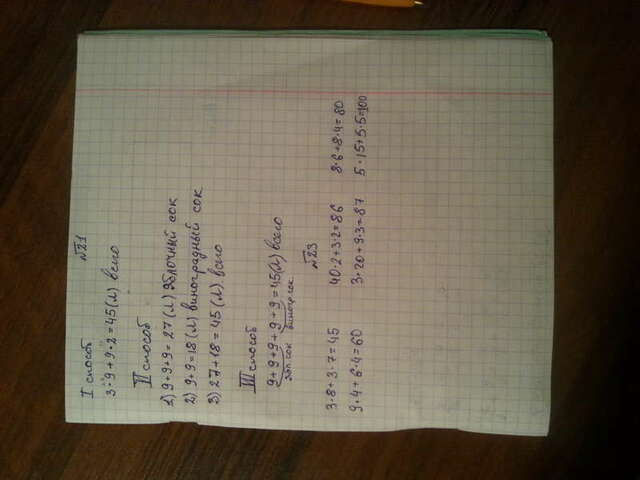 №21
I способ
3·9+9·2=45(л) всего
II способ
1) 9+9+9=27(л) яблочный сок
2) 9+9=18(л) виноградный сок
3) 27+18=45(л) всего
III способ
9+9+9+9+9=45(л) всего
ябл.сок виногр.сок
№23
3·8+3·7=45 40·2+3·2=86 8·6+8·4=80
9·4+6·4=60 3·20+9·3=87 5·15+5·5=100